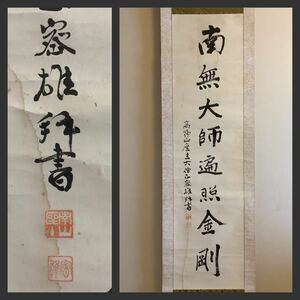 密雄拜書
南無大師遍照金剛
高野山座主大僧正密雄拜書